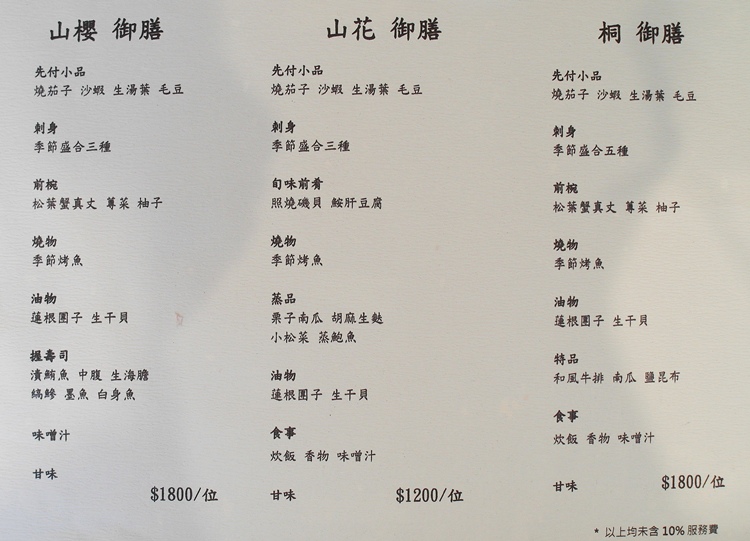 山櫻 御膳
先付小品
燒茄子 沙蝦 生湯葉 毛豆
刺身
季節盛合三種
前椀
松葉蟹真丈 蓴菜 柚子
燒物
季節烤魚
油物
蓮根團子 生干貝
握壽司
漬鮪魚 中腹 生海膽
縞鰺 墨魚 白身魚
味噌汁
甘味
$1800/位
山花 御膳
先付小品
燒茄子 沙蝦 生湯葉 毛豆
刺身
季節盛合三種
旬味前肴
照燒磯貝 鮟肝豆腐
燒物
季節烤魚
蒸品
栗子南瓜 胡麻生麩
小松菜 蒸鮑魚
油物
蓮根團子 生干貝
食事
炊飯 香物 味噌汁
甘味
$1200/位
桐 御膳
先付小品
燒茄子 沙蝦 生湯葉 毛豆
刺身
季節盛合五種
前椀
松葉蟹真丈 蓴菜 柚子
燒物
季節烤魚
油物
蓮根團子 生干貝
特品
和風牛排 南瓜 鹽昆布
食事
炊飯 香物 味噌汁
甘味
$1800/位
* 以上均未含 10% 服務費